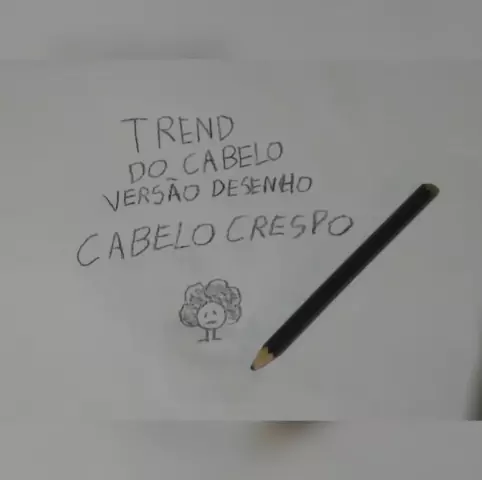 TREND
DO CABELO
VERSÃO DESENHO
CABELO CRESPO